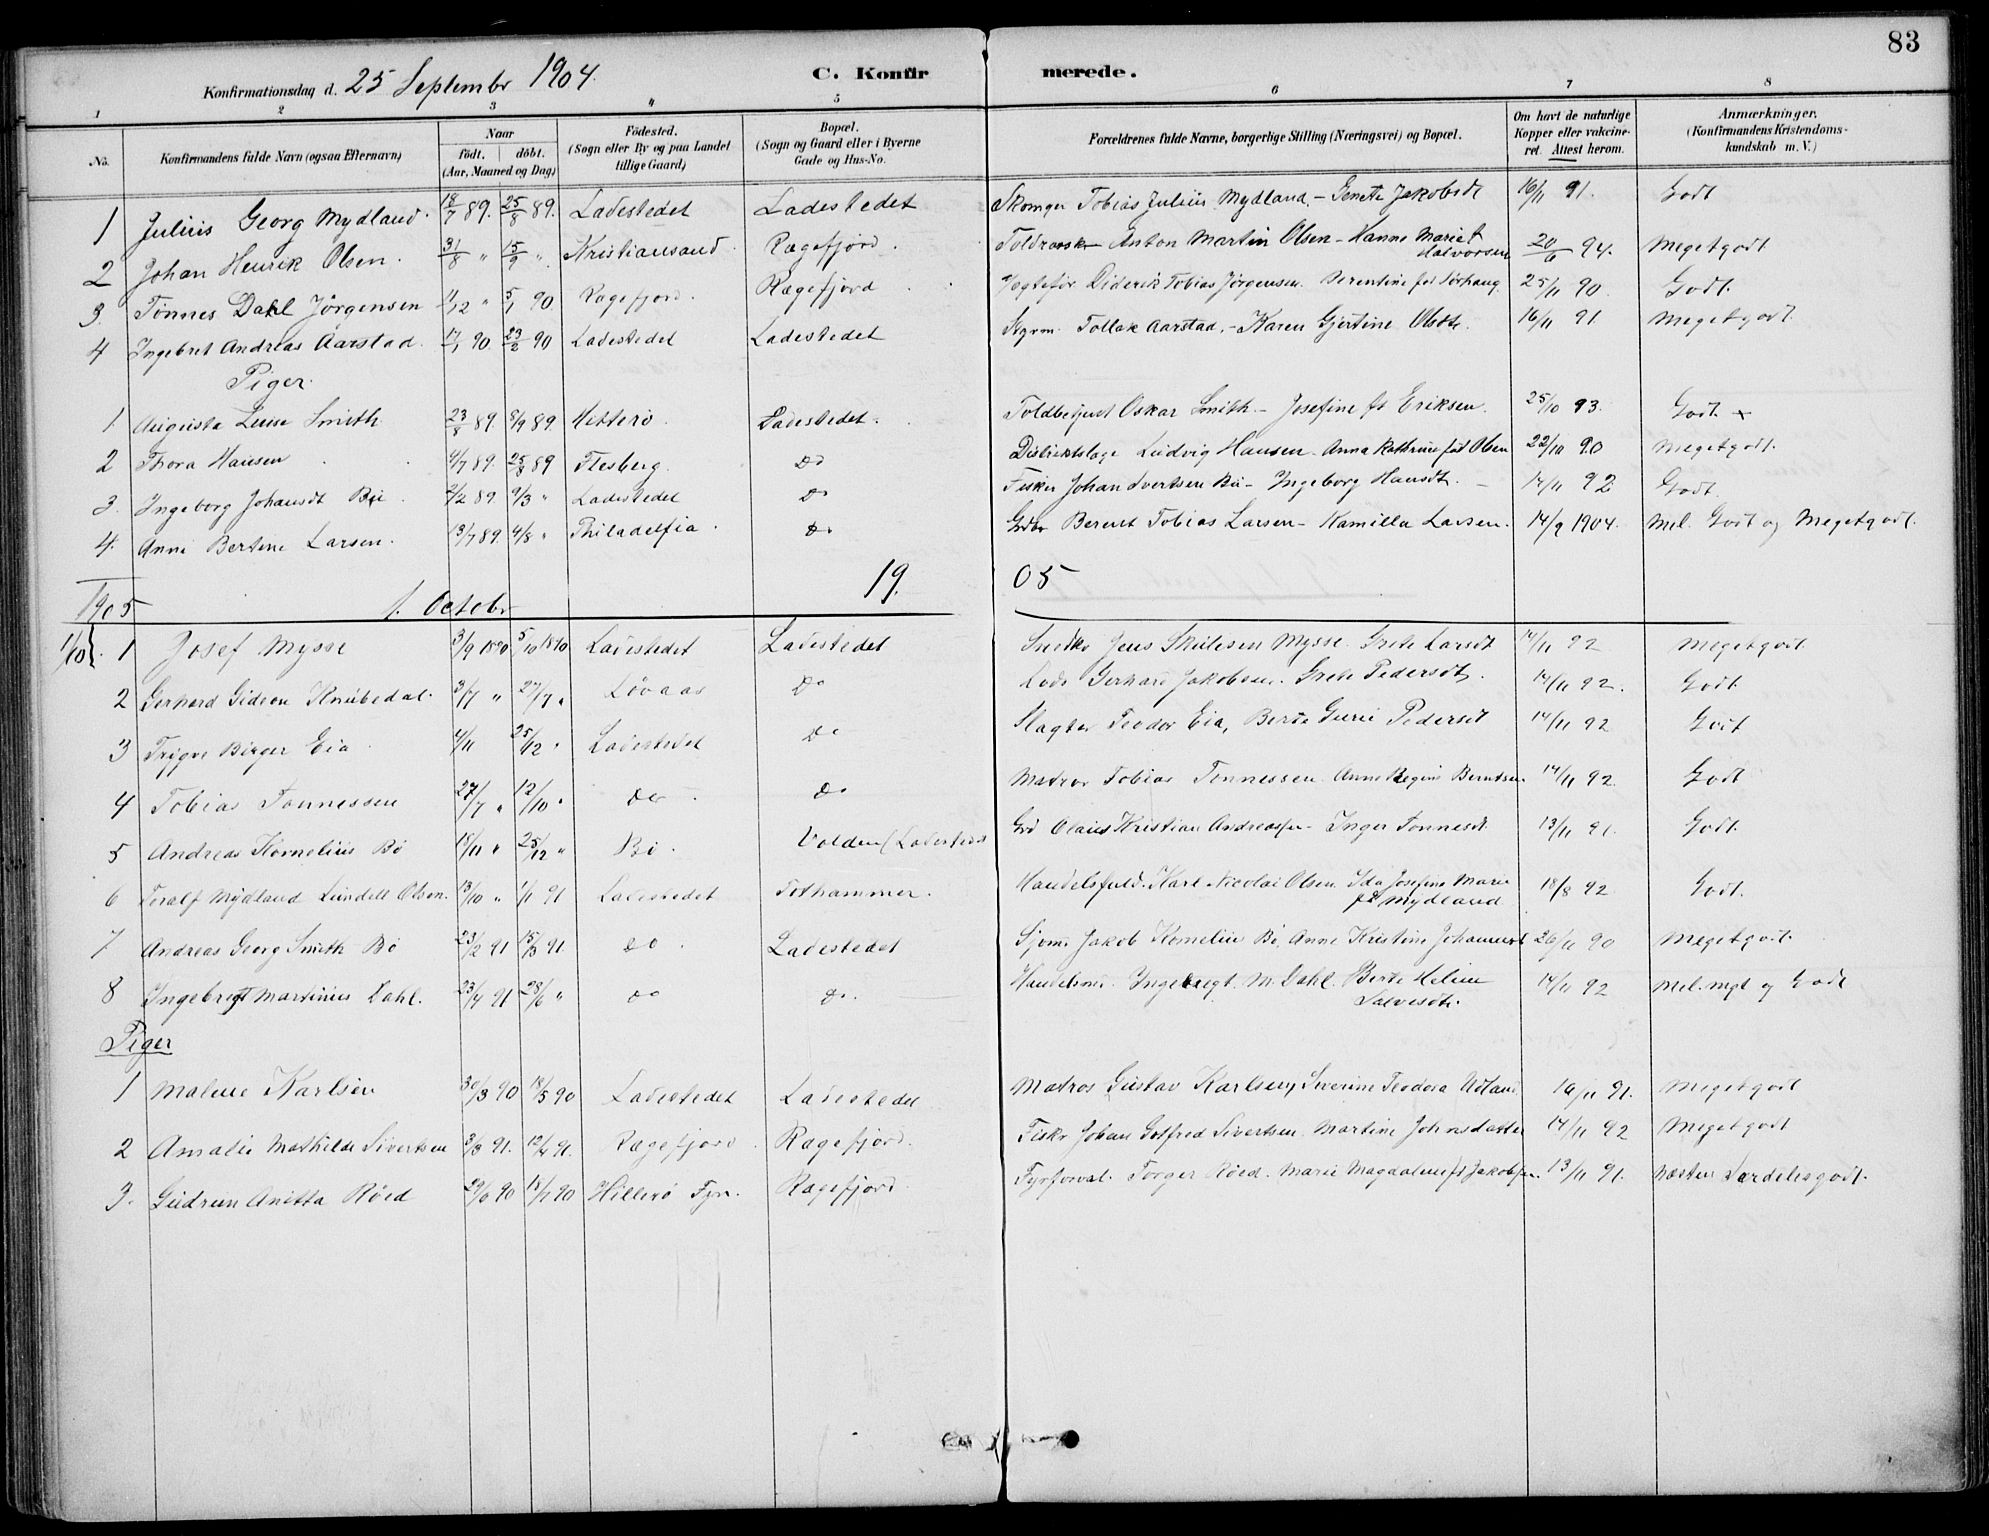 83
Konfirmationsdag d. 25 Septembr 1904.
C. Konfir merede.
1 2 3 4 5 6 7 8
No. Konfirmandens fulde Navn (ogsaa Efternavn) Naar födt. döbt. (Aar, Maaned og Dag) Födested. (Sogn eller By og paa Landet tillige Gaard) Bopæl. (Sogn og Gaard eller i Byerne Gade og Hus-No. Forældrenes fulde Navne, borgerlige Stilling (Næringsvei) og Bopæl. Om havt de naturlige Kopper eller vakcineret. Attest herom. Anmærkninger. (Konfirmandens Kristendomskundskab m. V.)
1 Julius Georg Mydland. 18/7 89. 25/8 89. Ladestedet Ladestedet Skomger Tobias Julius Mydland. - Jakobsdt 16/11 91. Godt
2 Johan Henrik Olsen. 31/8 " 15/9 " Kristiansand Rægefjord. Anton Martin Olsen - Hanne Marie Halvorsen 20/6 94. Megetgodt
3. Tönnes Dahl Jörgensen 11/12 " 5/1 90. Rægefjord. Rægefjord Diderik Tobias Jörgensen. Berentine föd Sörhaug 25/11 90. Godt.
4 Ingebret Andreas Aarstad. 17/1 90. 23/2 90 Ladestedet Ladestedet Tollak Aarstad. - Karen Gjertine Olsdt. 16/11 91 Megetgodt
Piger.
1 Augusta Smith 23/8 89. 8/9 89. Hitterö. Ladestedet. Toldbetjent Oskar Smith - Josefine fd Eriksen. 25/10 93. Godt x
2 Thora Hansen 4/7 89. 25/8 89 Flesberg. Do Distriktslæge Ludvig Hansen - Anna Kathrine föd Olsen 22/10 90 Megetgodt.
3. Ingeborg Johansdt Bu. 2/2 89. 9/3 " Ladestedet Do Fisker Johan Ivertsen Bu - Ingeborg Hansdt. - 14/11 92 Godt.
4. Anni Bertine Larsen. 13/7 89. 4/8 " Philadelfia. Do Berent Tobias Larsen - Kamilla Larsen. 14/9 1904. Mel. Godt og Megetgodt.
1905 1. Octobr 19. 05
1/10 1 Josef Mysse 3/9 1890 5/10 1890 Ladestedet Ladestedet Snedkr Jens Mysse. Grete Larsdt 14/11 92 Megetgodt
2 Gerhard Gideon Knubedal. 3/7 " 27/7 " Lövaas Do Lods Gerhard Jakobsen. Grete Pedersdt. 14/11 92. Godt.
3 Trygve Birger Eia 4/11 25/12 " Ladestedet Do Slagter Teodor Eia, Berte Gurie Pedersdt 14/11 92 Godt
4 Tobias Tönnessen 27/7 " 12/10 " Do Do Matros Tobias Tönnessen. Anne Regine Berntsen 14/11 92. Godt
5 Andreas Kornelius Bö 18/11 " 25/12 " Bö. Volden (Ladestedet Olaus Kristian Andreassen - Inger Tönnesdt. 13/11 91. Godt.
6 Toralf Mydland Lundell Olsen. 13/10 " 1/1 91 Ladestedet Tothammer. Handelsfuld. Karl Nicolai Olsen. Ida Josefine Marie fd Mydland 18/8 92 Godt.
7 Andreas Georg Smith Bö 23/2 91 15/3 91. Do Ladestedet Sjöm. Jakob Kornelius Bö, Anne Kristine Johannesdt 26/11 90 Megetgodt.
8 Ingebrigt Martinius Dahl. 23/4 91 28/6 " Do Do. Handelsmd. Ingebregt. M. Dahl. Berte Helene Salvesdt. 14/11 92 Mel. mgt og Godt
Piger
1 Malene Karlsen 30/3 90 18/5 90 Ladestedet Ladestedet Matros Gustav Karlsen, Severine Teodora Udland 16/11 91. Megetgodt
2 Amalie Mathilde Sivertsen 3/3 91. 12/4 91. Rægefjord Rægefjord. Fiskr Johan Gotfred Sivertsen. Martine Johnsdatter 14/11 92 Megetgodt
3. Gudrun Anetta Röed 29/6 90 18/7 90 Hillerö Fyr. Rægefjord. Fyrforval. Torger Röed. Marie Magdalene fd Jakobsen. 13/11 91. Næsten Særdelesgodt.